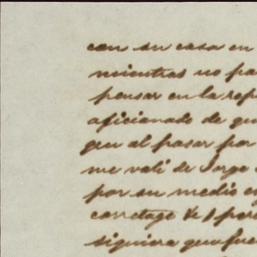 con su casa en
mientras no pa
pensar en la rep
aficionado de qu
gru al pasar por
me vali de Jorge
por su medio en
carretage &c) por
siquiera que fue